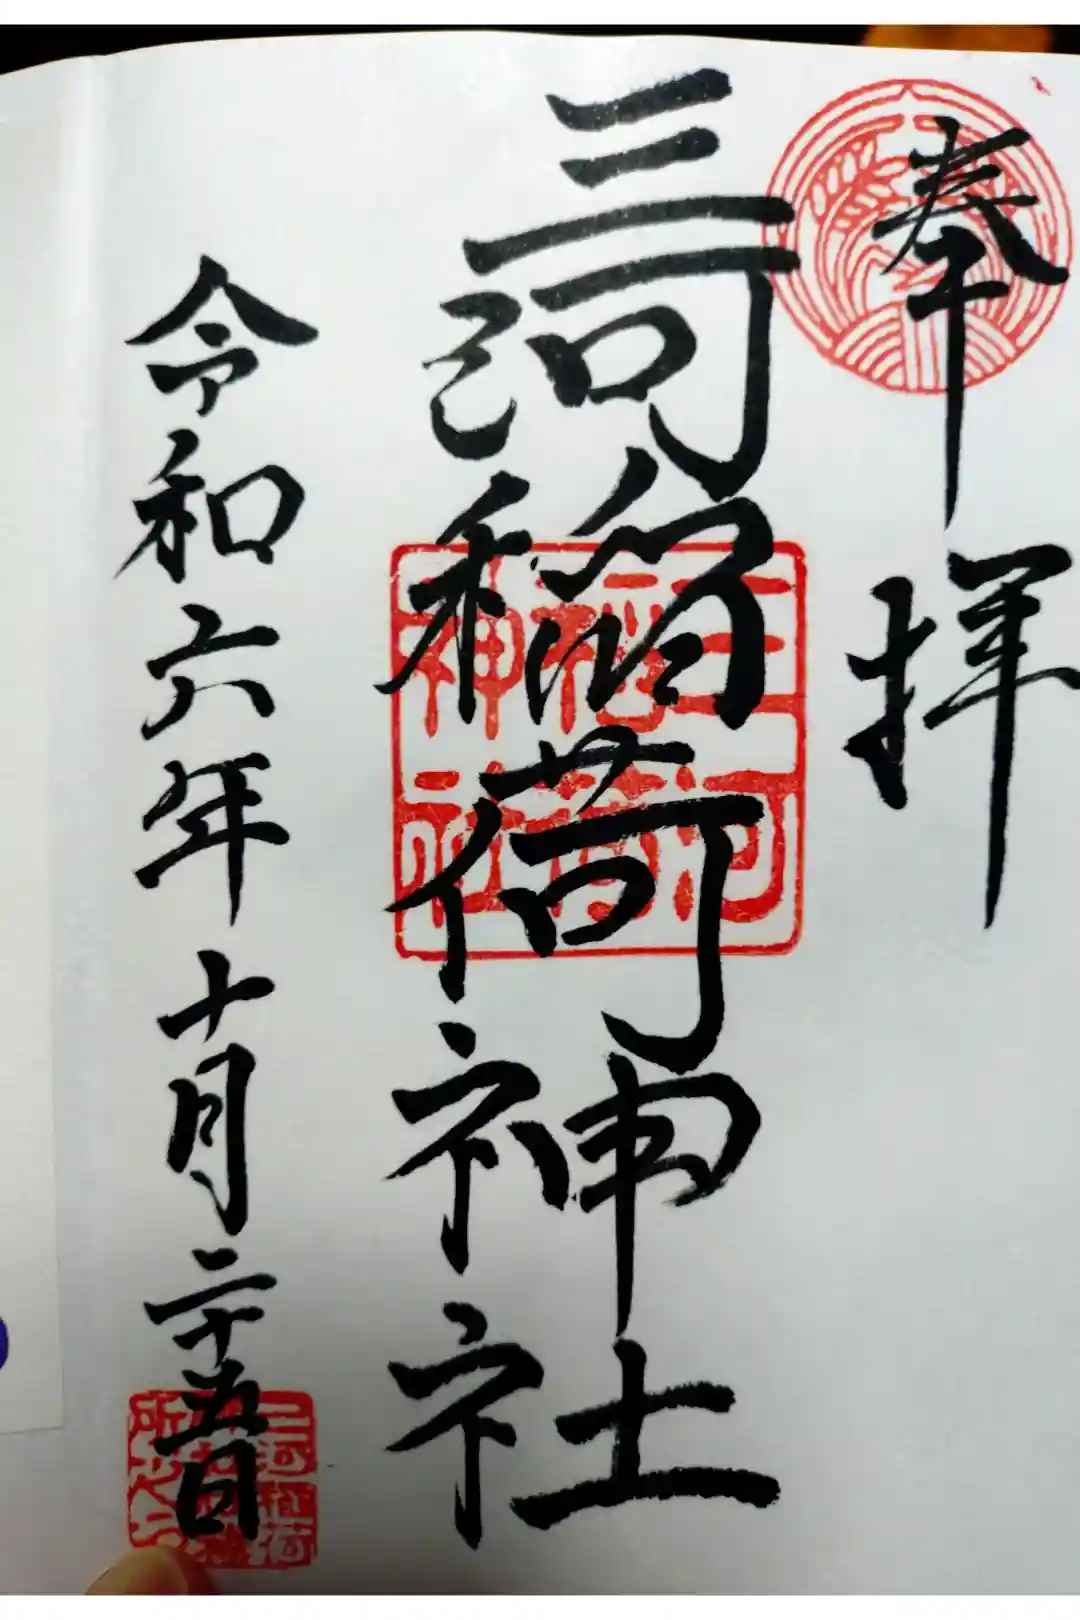 奉拝
三河稲荷神社
三河稲荷神社
令和六年十月二十五日